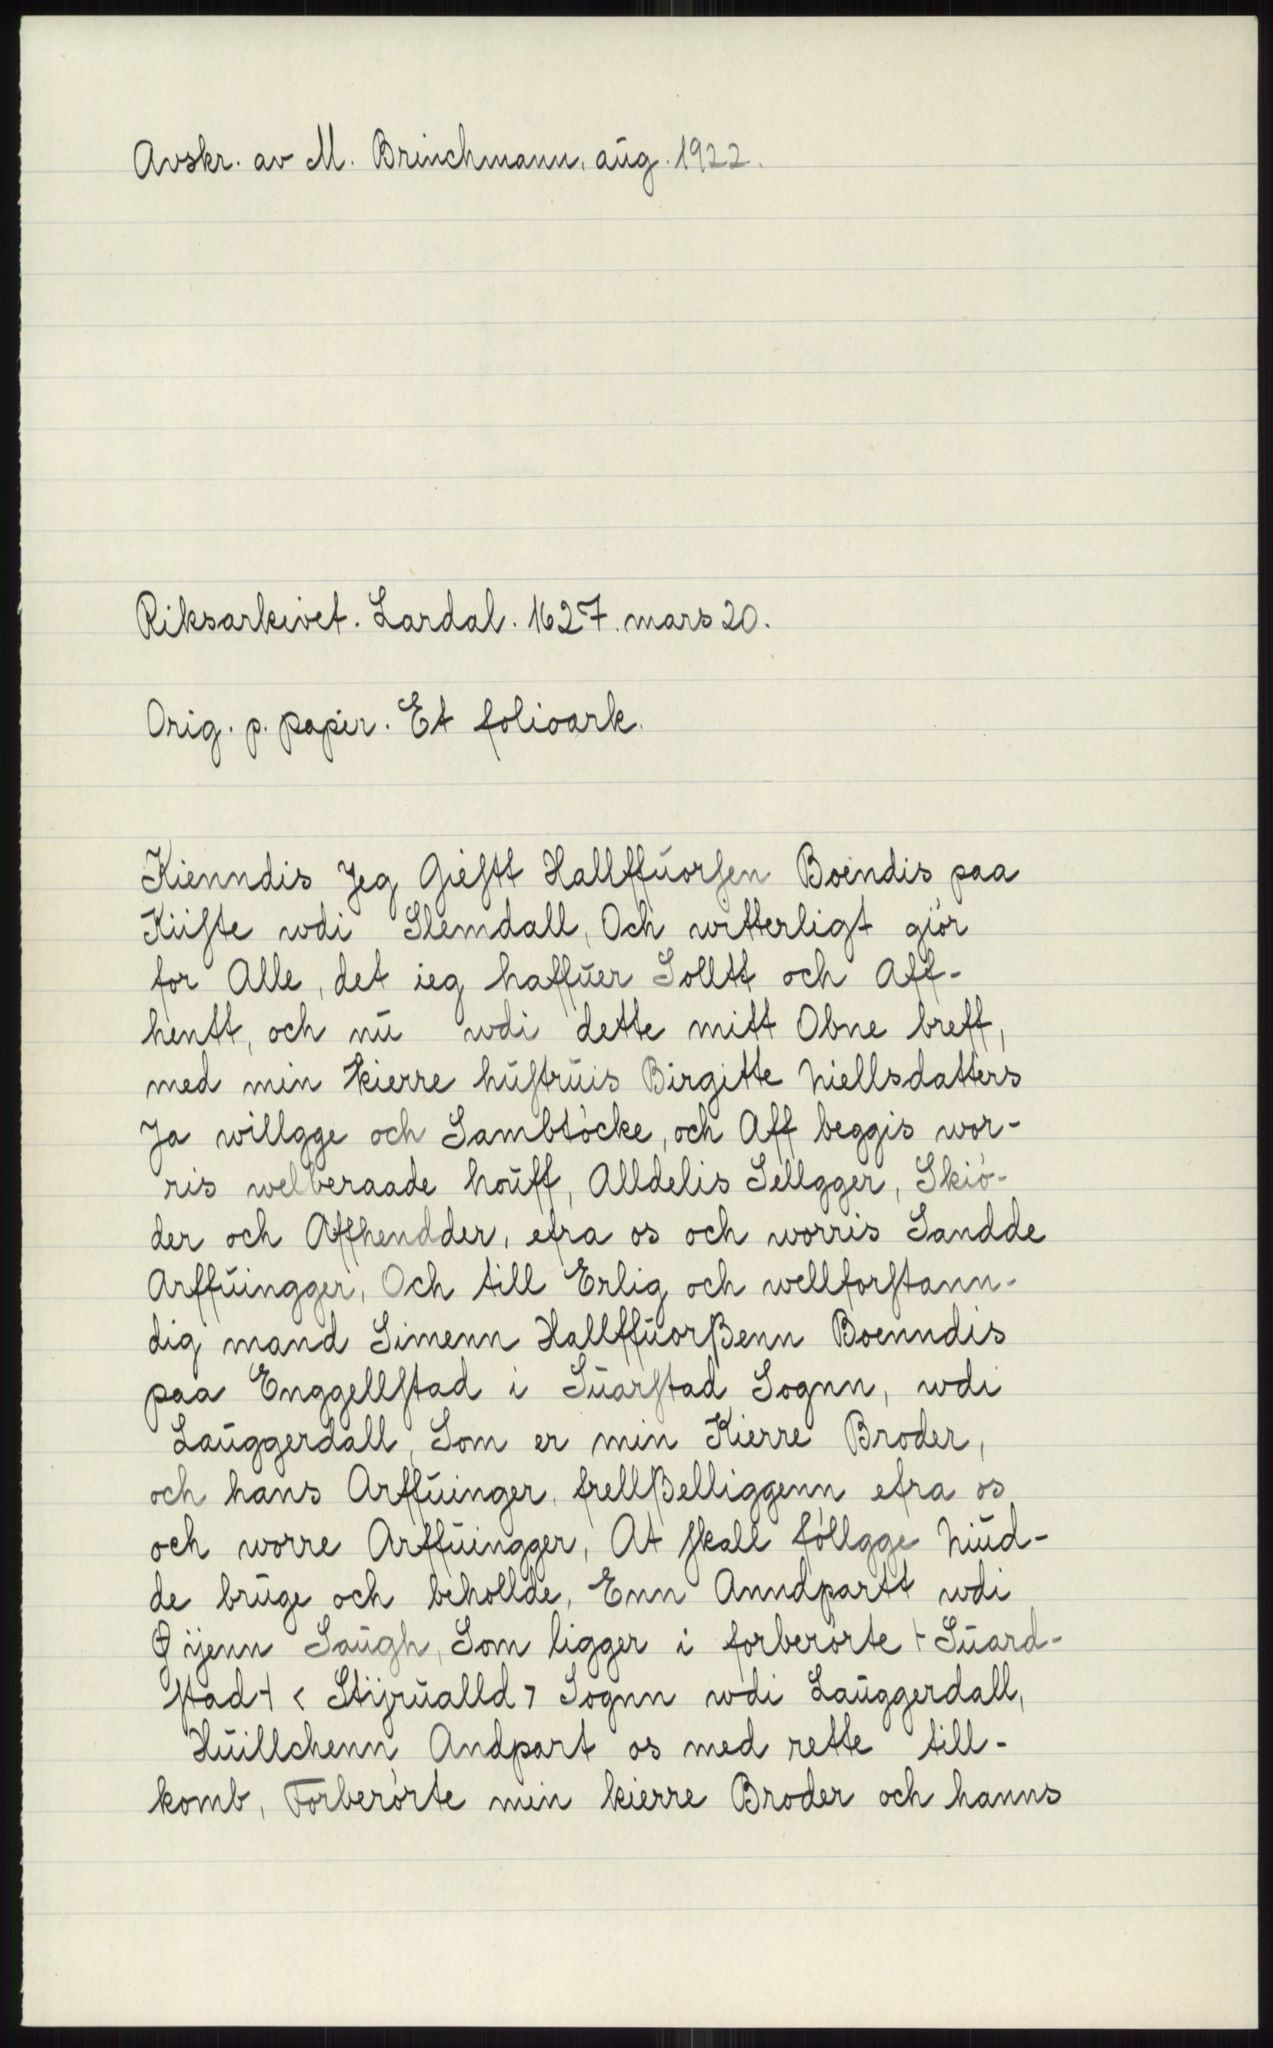 Avskr. av M. Brinchmann, aug. 1922.
Riksarkivet. Lardal. 1627. mars 20.
Orig. p. papir. Et folioark.
Kienndis Jeg Gieſtt Hallffuorſen Boendis paa
Kiiſte wdi Slemdall, Och witterligt giör
for Alle, det ieg haffuer Solltt och Aff-
hentt, och nu wdi dette mitt Obne breff,
med min kierre huſtruis Birgitte Niellsdatters
Ja willgge och Sambtöcke, och Aff beggis wor-
ris welberaade houff, Alldelis Sellgger, Skiö-
der och Affhendder, efra os och worris Sandde
Arffuingger, Och till Erlig och wellforſtann-
dig mand Simenn Hallffuorßenn Boenndis
paa Enggellſtad i Suarſtad Sognn, wdi
Lauggerdall, Som er min Kierre Broder,
och hans Arffuinger, frellßelliggenn efra os
och worre Arffuingger, At ſkall föllgge Niud-
de bruge och behollde, Enn Anndpartt wdi
Øijenn Saugh, Som ligger i forberörte ⊢ Suard-
ſtad ⊣ < Stijrualld > Sognn wdi Lauggerdall,
Huillchenn Andpart os med rette till-
komb, Forberörte min kierre Broder och hanns